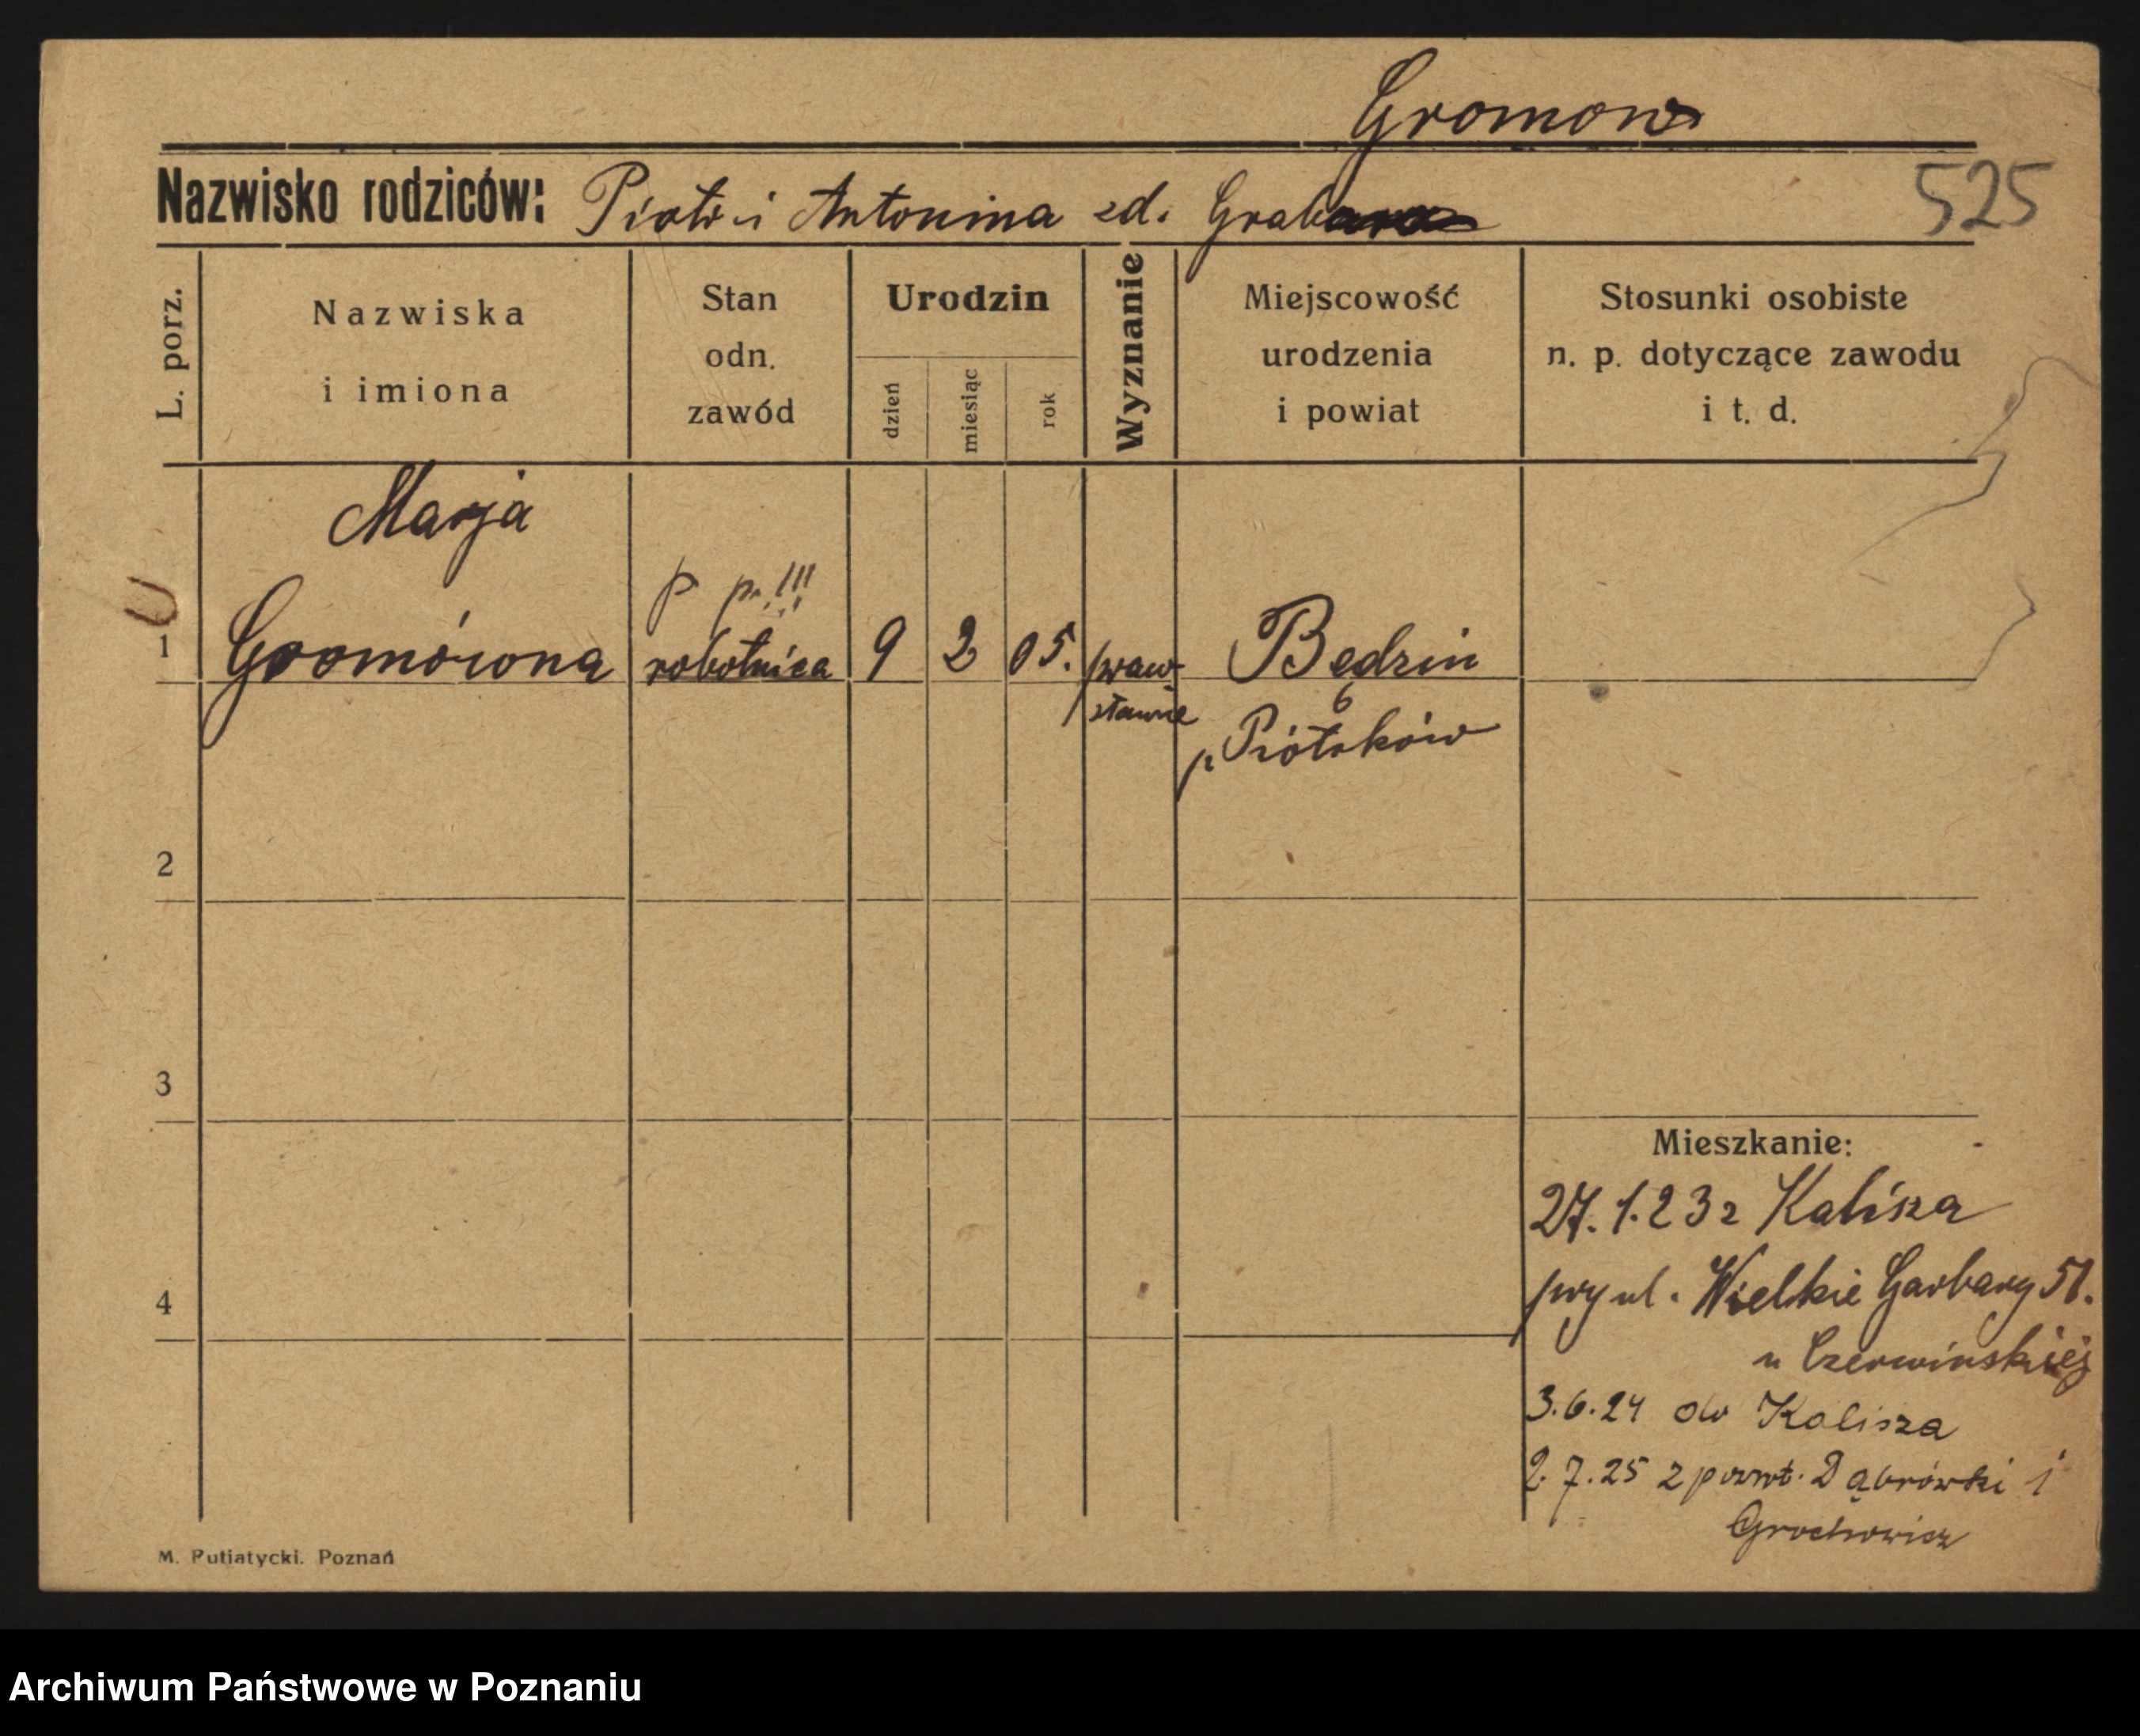 Gromow
Nazwisko rodziców: Piotr i Antonina zd. Grabara
525
L. porz.
Nazwiska
i imiona
Stan
odn.
zawód
Urodzin
dzień
miesiąc
rok
Wyznanie
Miejscowość
urodzenia
i powiat
Stosunki osobiste
n. p. dotyczące zawodu
i t. d.
Marja
p. p. !!!
1 Gromówona robotnica 9 2 05. praw- Będzin
sławne
p. Piótrków
2
3
Mieszkanie:
27.1.23 z Kalisza
przy ul. Wielkie Garbary 51.
4
u Czerwińskiej
3.6.24 do Kalisza
2.7.25 z powrot. Dąbrówki 1
Grochowicz
M. Putiatycki. Poznań
Archiwum Państwowe w Poznaniu